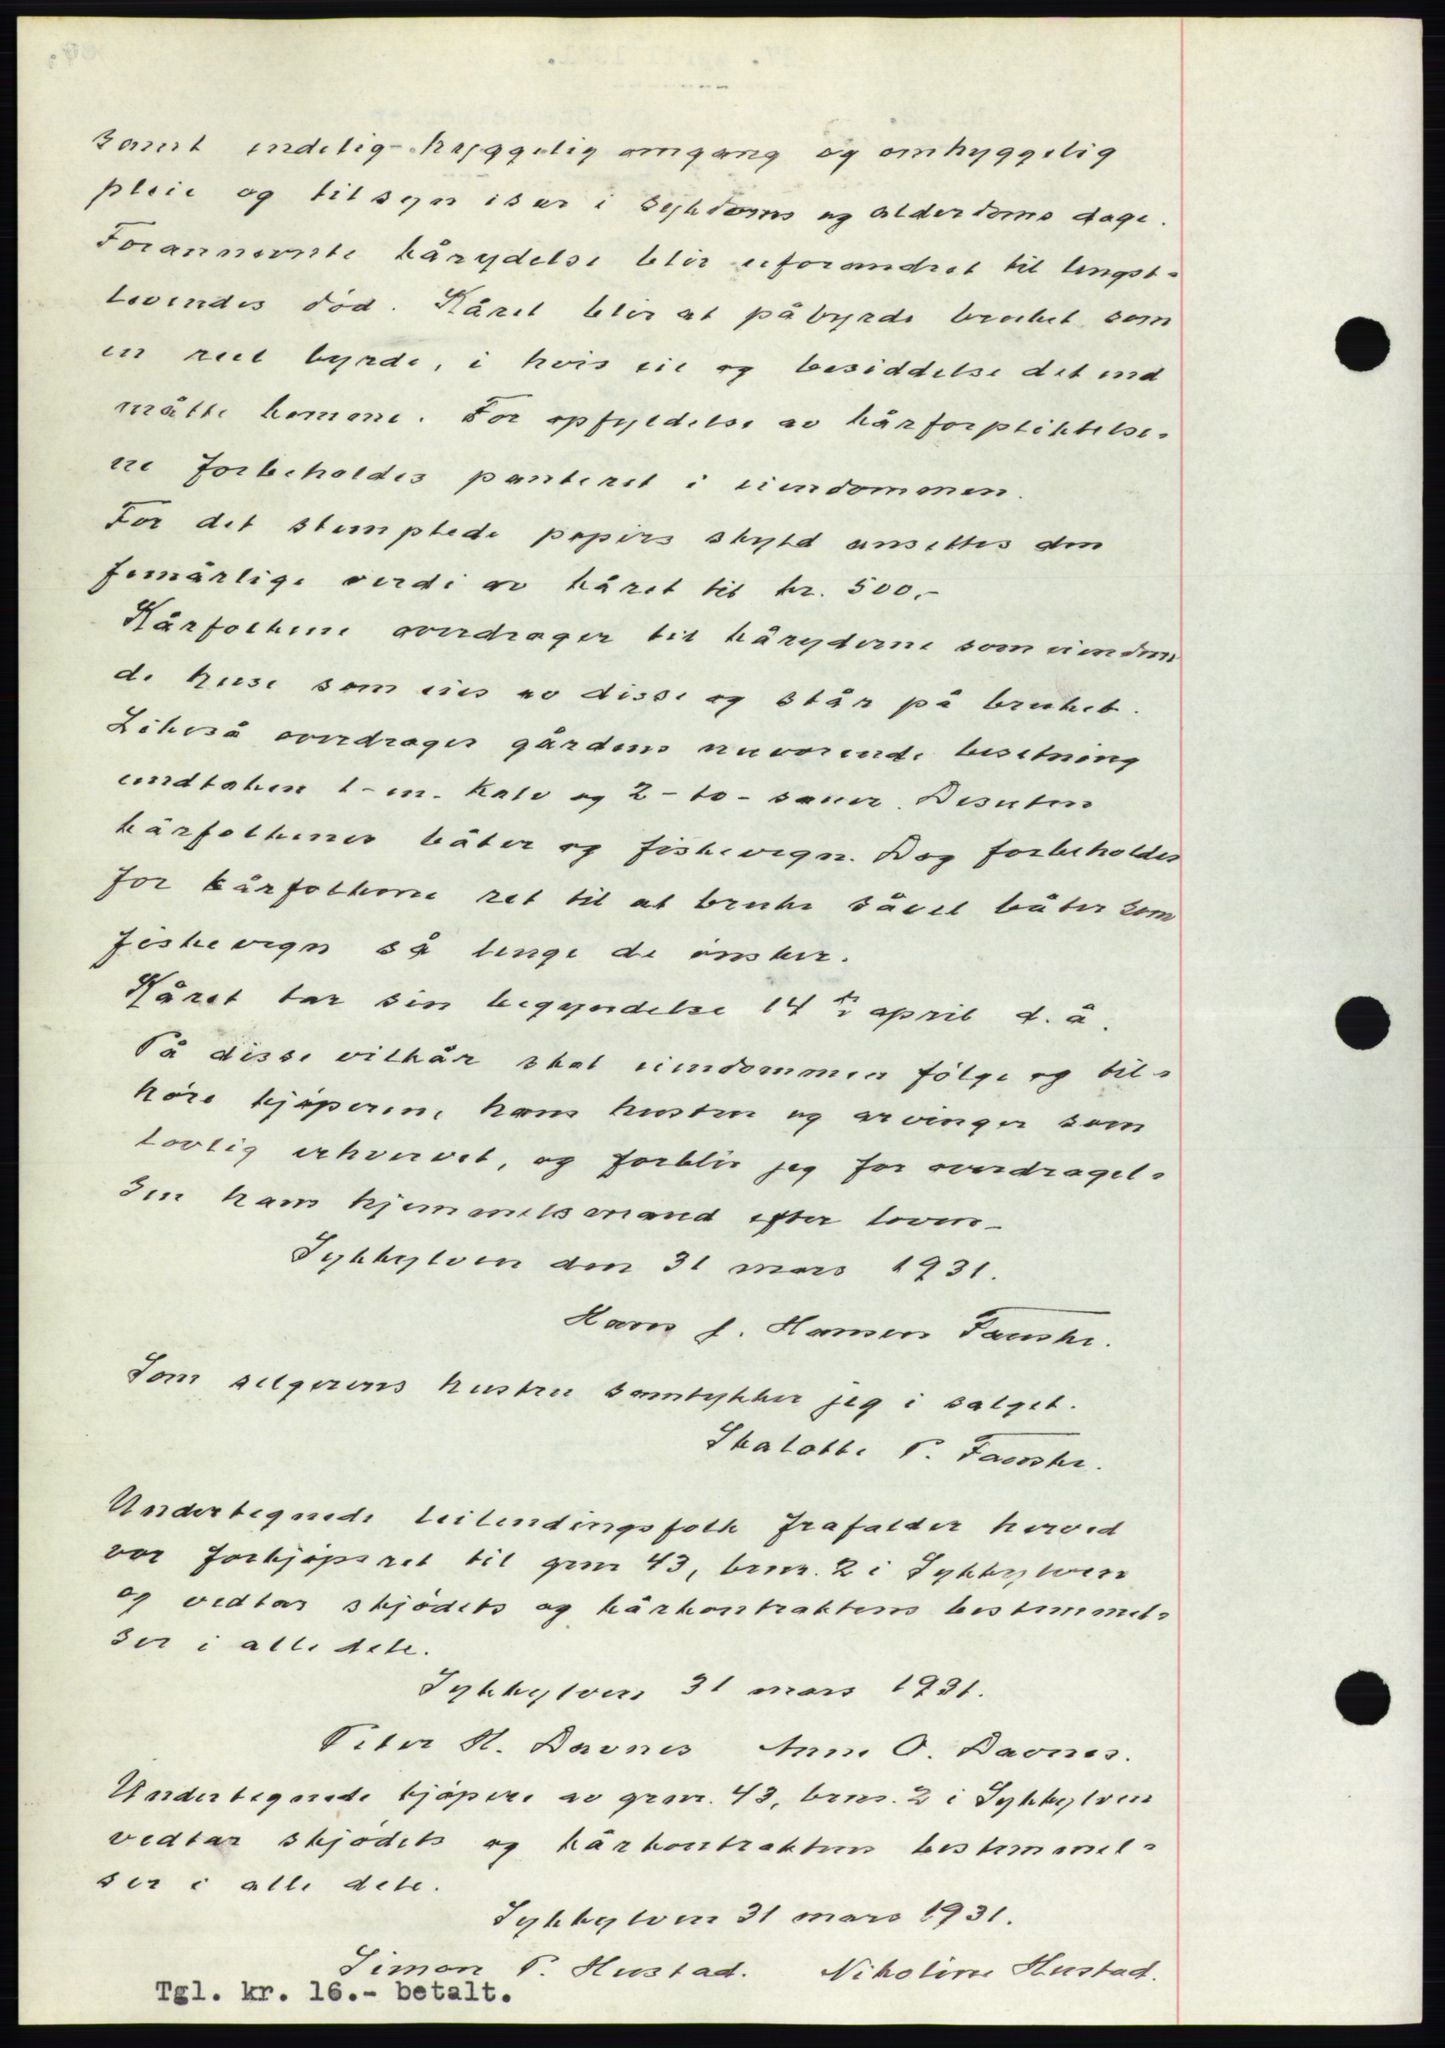 samt endelig hyggelig omgang og omhyggelig
pleie og tilsyn især i sykdoms og alderdoms dage.
Forannevnte kårydelse blir uforandret til lengst-
levendes død. Kåret blir at påbyrde bruket som
en reel byrde, i hvis eie og besiddelse det end
måtte komme. For opfyldelse av kårforpliktelse-
ne forbeholdes panteret i eiendommen.
For det stemplede papirs skyld ansettes den
femårlige verdi av kåret til kr. 500.-
Kårfolkene overdrager til kåryderne som eiendom
de huse som eies av disse og står på bruket.
Likeså overdrages gårdens nuværende besetning
undtaken 1-en- kalv og 2-to- sauer. Desuten
kårfolkenes båter og fiskevegn. Dog forbeholdes
for kårfolkene ret til at bruke såvel båter som
fiskevegn så lenge de ønsker.
Kåret tar sin begyndelse 14 de april d. å.
På disse vilkår skal eiendommen følge og til-
høre kjøperen, hans hustru og arvinger som
lovlig erhvervet, og forblir jeg for overdragel-
sen hans hjemmelsmand efter loven-
Sykkylven den 31 mars 1931.
Hans J. Hansen Fauske.
Som selgerens hustru samtykker jeg i salget.
Skalotte P. Fauske.
Undertegnede leilendingsfolk frafalder herved
vor forkjøpsret til gnr 43, brnr. 2 i Sykkylven
og vedtar skjødets og kårkontraktens bestemmel-
ser i alle dele.
Sykkylven 31 mars 1931.
Peter H. Davnes Anne O. Davnes.
Undertegnede kjøpere av grnr. 43, brnr. 2 i Sykkylven
vedtar skjødets og kårkontraktens bestemmel-
ser i alle dele.
Sykkylven 31 mars 1931.
Simon P. Hustad. Nikoline Hustad.
Tgl. kr. 16.- betalt.